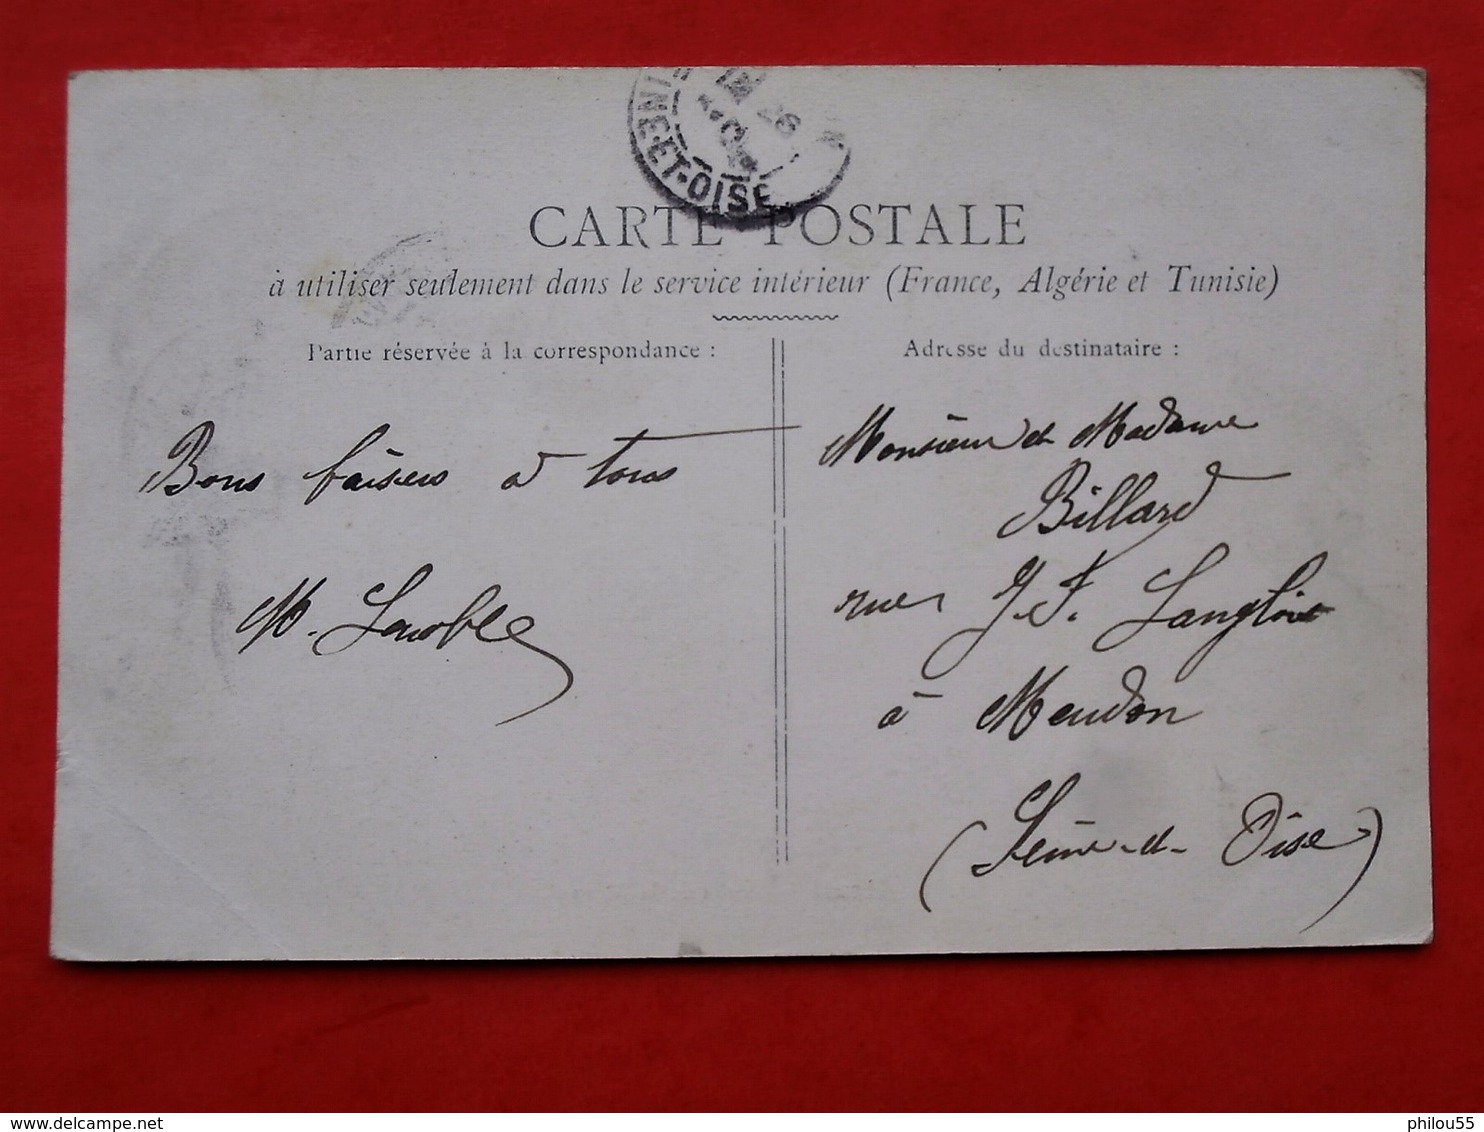 INE-ET-OISE
CARTE POSTALE
à utiliser seulement dans le service intérieur (France, Algérie et Tunisie)
Partie réservée à la correspondance :
Adresse du destinataire :
Bons baisers à tous
M. Lenoble
Monsieur et Madame
Billard
rue J. F. Langlois
à Meudon
(Seine-et-Oise)
philou55